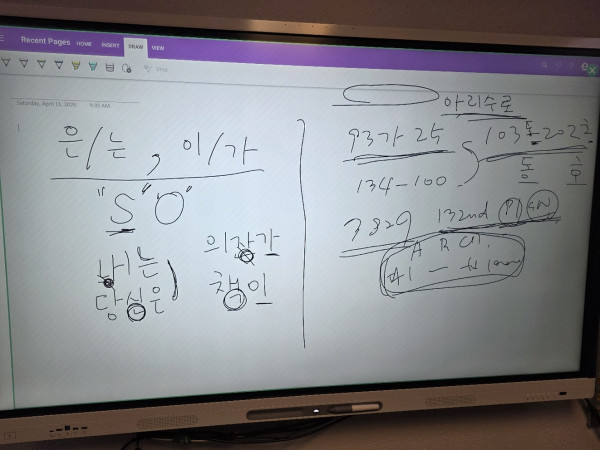 Recent Pages HOME INSERT DRAW VIEW
Saturday, April 15, 2023 9:35 AM
은/는, 이/가
"S" O
나는
당신은
의자가
책이
아리수로
93가 25
103동 202호
동 호
134-100
3829 132nd Pl SW
A R Ct.
#1 —